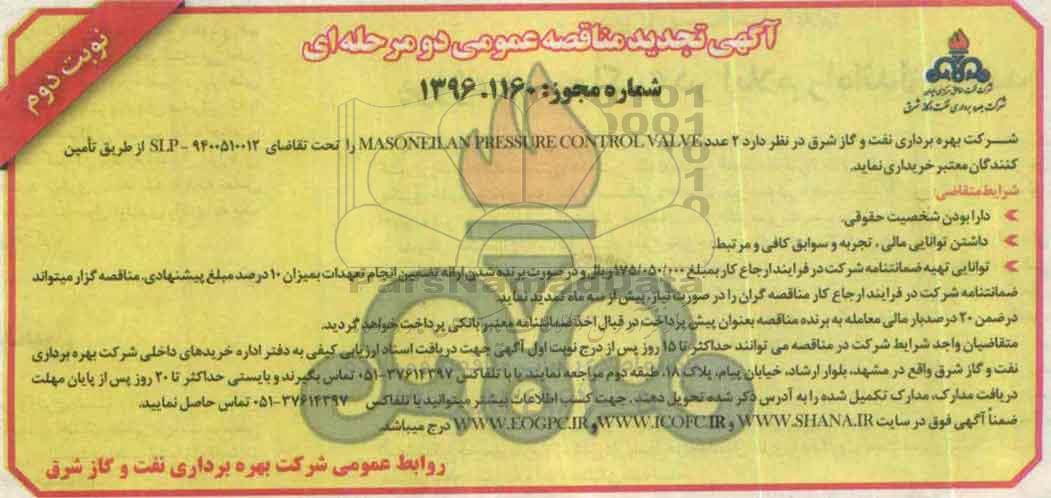 نوبت دوم
آگهی تجدید مناقصه عمومی دو مرحله ای
شماره مجوز: ۱۳۹۶.۱۱۶۰
شرکت بهره برداری نفت و گاز شرق
شــرکت بهره برداری نفت و گاز شرق در نظر دارد ۲ عدد MASONEILAN PRESSURE CONTROL VALVE را تحت تقاضای SLP - ۹۴۰۰۵۱۰۰۱۲ از طریق تأمین
کنندگان معتبر خریداری نماید.
شرایط متقاضی:
دارا بودن شخصیت حقوقی.
داشتن توانایی مالی ، تجربه و سوابق کافی و مرتبط.
توانایی تهیه ضمانتنامه شرکت در فرایند ارجاع کار بمبلغ ۱۷۵/۰۵۰/۰۰۰ ریال و در صورت برنده شدن ارائه تضمین انجام تعهدات بمیزان ۱۰ درصد مبلغ پیشنهادی. مناقصه گزار میتواند
ضمانتنامه شرکت در فرایند ارجاع کار مناقصه گران را در صورت نیاز، پیش از سه ماه تمدید نماید.
در ضمن ۲۰ درصد بار مالی معامله به برنده مناقصه بعنوان پیش پرداخت در قبال اخذ ضمانتنامه معتبر بانکی پرداخت خواهد گردید.
متقاضیان واجد شرایط شرکت در مناقصه می توانند حداکثر تا ۱۵ روز پس از درج نوبت اول آگهی جهت دریافت اسناد ارزیابی کیفی به دفتر اداره خریدهای داخلی شرکت بهره برداری
نفت و گاز شرق واقع در مشهد، بلوار ارشاد، خیابان پیام، پلاک ۱۸، طبقه دوم مراجعه نمایند یا با تلفاکس ۳۷۶۱۴۳۹۷-۰۵۱ تماس بگیرند و بایستی حداکثر تا ۲۰ روز پس از پایان مهلت
دریافت مدارک، مدارک تکمیل شده را به آدرس ذکر شده تحویل دهند . جهت کسب اطلاعات بیشتر میتوانید با تلفاکس ۳۷۶۱۴۳۹۷-۰۵۱ تماس حاصل نمایید.
ضمناً آگهی فوق در سایت WWW.SHANA.IR و WWW.ICOFC.IR و WWW.EOGPC.IR درج میباشد.
روابط عمومی شرکت بهره برداری نفت و گاز شرق
ParsNamadData